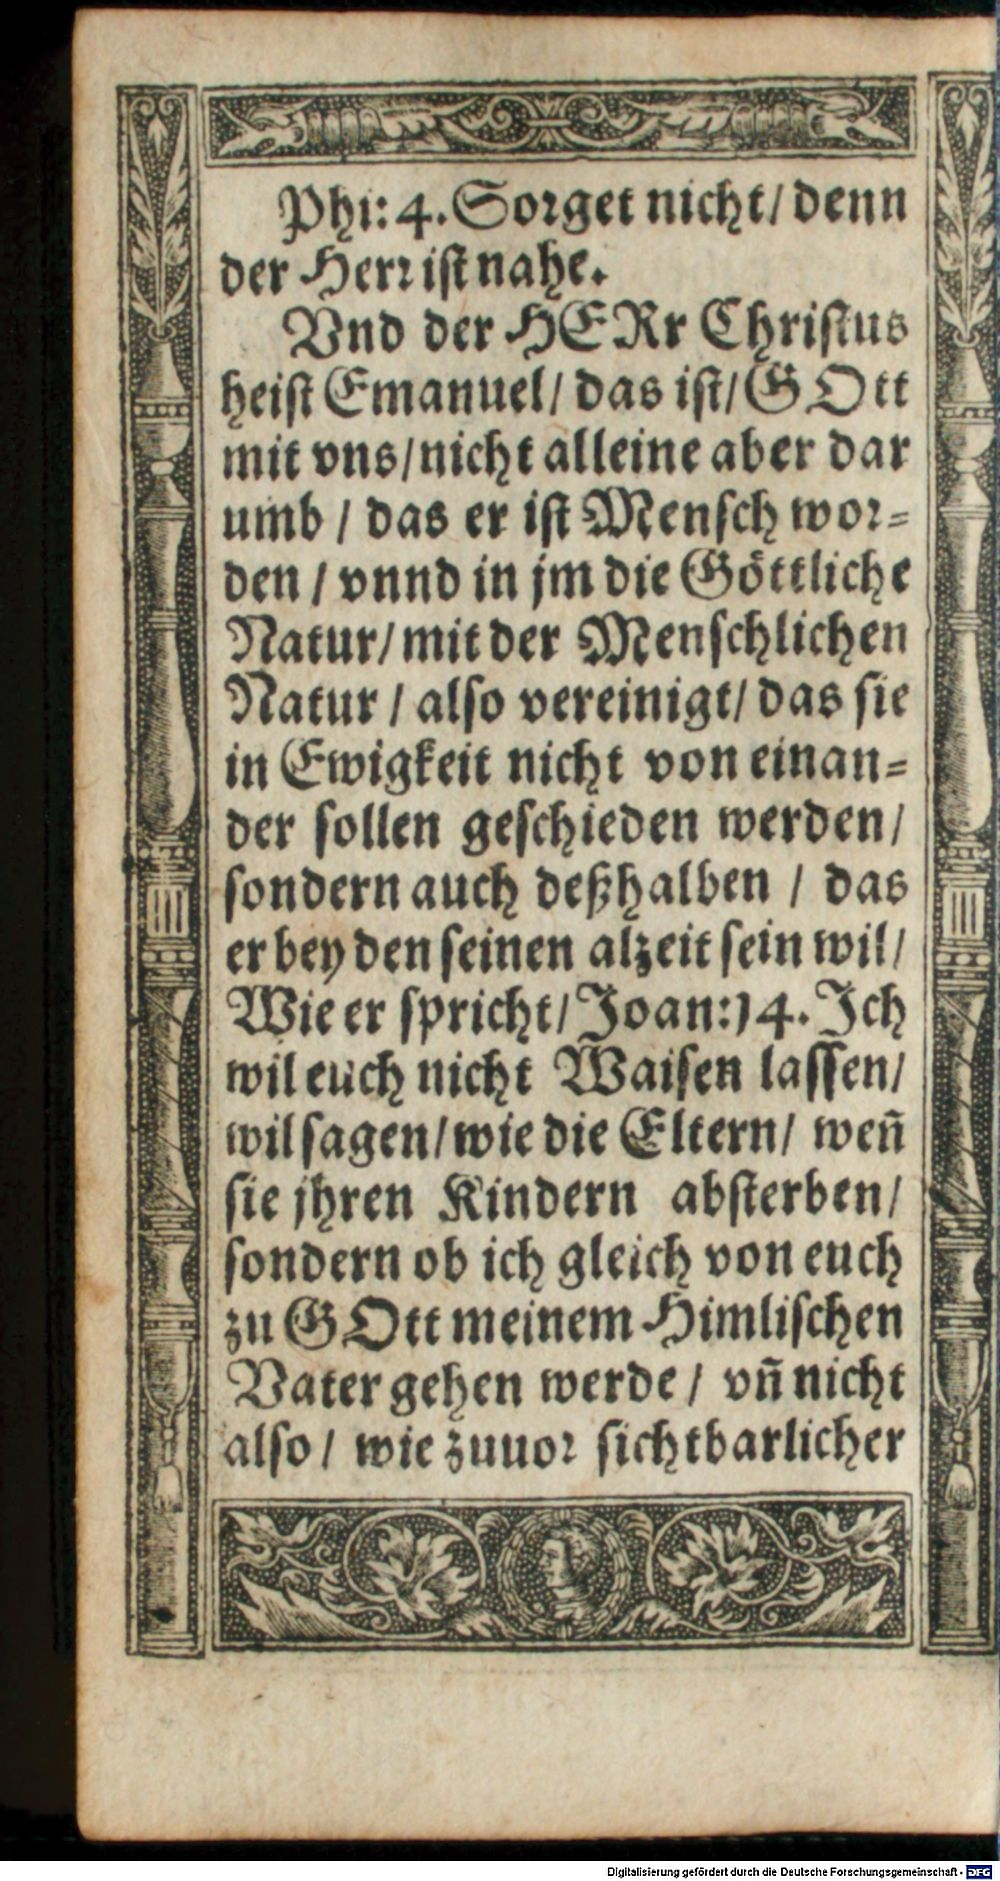 Phi: 4. Sorget nicht/ denn
der Herr ist nahe.
Vnd der HERr Christus
heist Emanuel/ das ist/ GOtt
mit vns/ nicht alleine aber dar
umb / das er ist Mensch wor=
den / vnnd in jm die Göttliche
Natur/ mit der Menschlichen
Natur / also vereinigt/ das sie
in Ewigkeit nicht von einan=
der sollen geschieden werden/
sondern auch deßhalben / das
er bey den seinen alzeit sein wil/
Wie er spricht/ Joan: 14. Ich
wil euch nicht Waisen lassen/
wil sagen/ wie die Eltern/ weñ
sie jhren Kindern absterben/
sondern ob ich gleich von euch
zu GOtt meinem Himlischen
Vater gehen werde / vñ nicht
also / wie zuuor sichtbarlicher
Digitalisierung gefördert durch die Deutsche Forschungsgemeinschaft - DFG